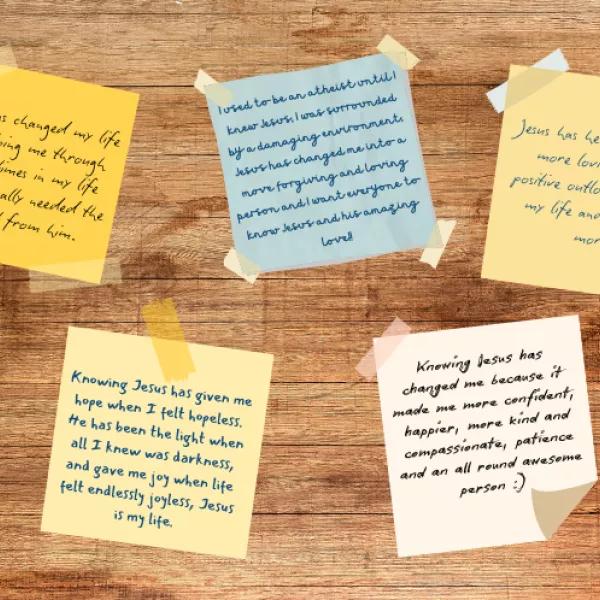 changed my life
me through
in my life
needed the
from him.
I used to be an atheist until I
knew Jesus, I was surrounded
by a damaging environment.
Jesus has changed me into a
more forgiving and loving
person and I want everyone to
know Jesus and his amazing
love!!
Jesus has
more
positive
my life and
Knowing Jesus has given me
hope when I felt hopeless.
He has been the light when
all I knew was darkness,
and gave me joy when life
felt endlessly joyless, Jesus
is my life.
Knowing Jesus has
changed me because it
made me more confident,
happier, more kind and
compassionate, patience
and an all round awesome
person :)